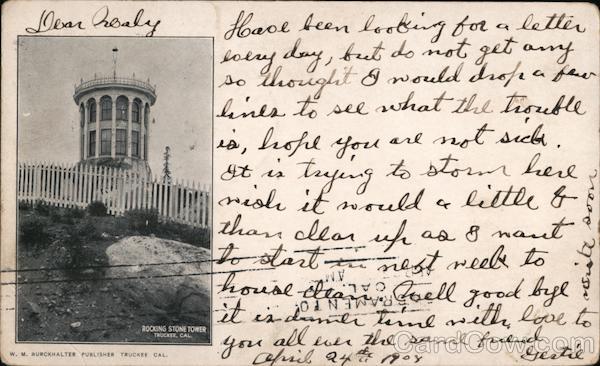 Dear Rosaly
Have been looking for a letter
every day, but do not get any
so thought I would drop a few
lines to see what the trouble
is, hope you are not sick.
It is trying to storm here
wish it would a little &
than clear up as I want
to start in next week to
house clean. Well good bye
it is dinner time with love to
you all ever the same friend
April 24th 1908 Gertie
write soon
SACRAMENTO
CAL.
AM
ROCKING STONE TOWER
TRUCKEE, CAL.
W. M. BURCKHALTER PUBLISHER TRUCKEE CAL.
CardCow.com